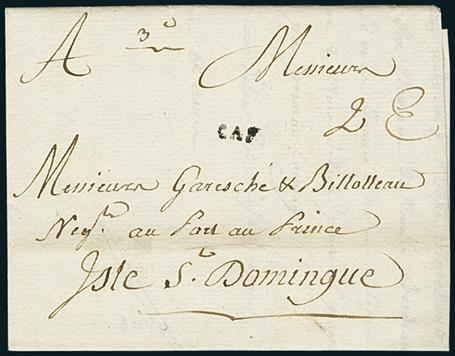 A 3c Messieurs
2 E
CAP
Messieurs Garesché & Billolleau
Negts. au Port au Prince
Isle St. Domingue